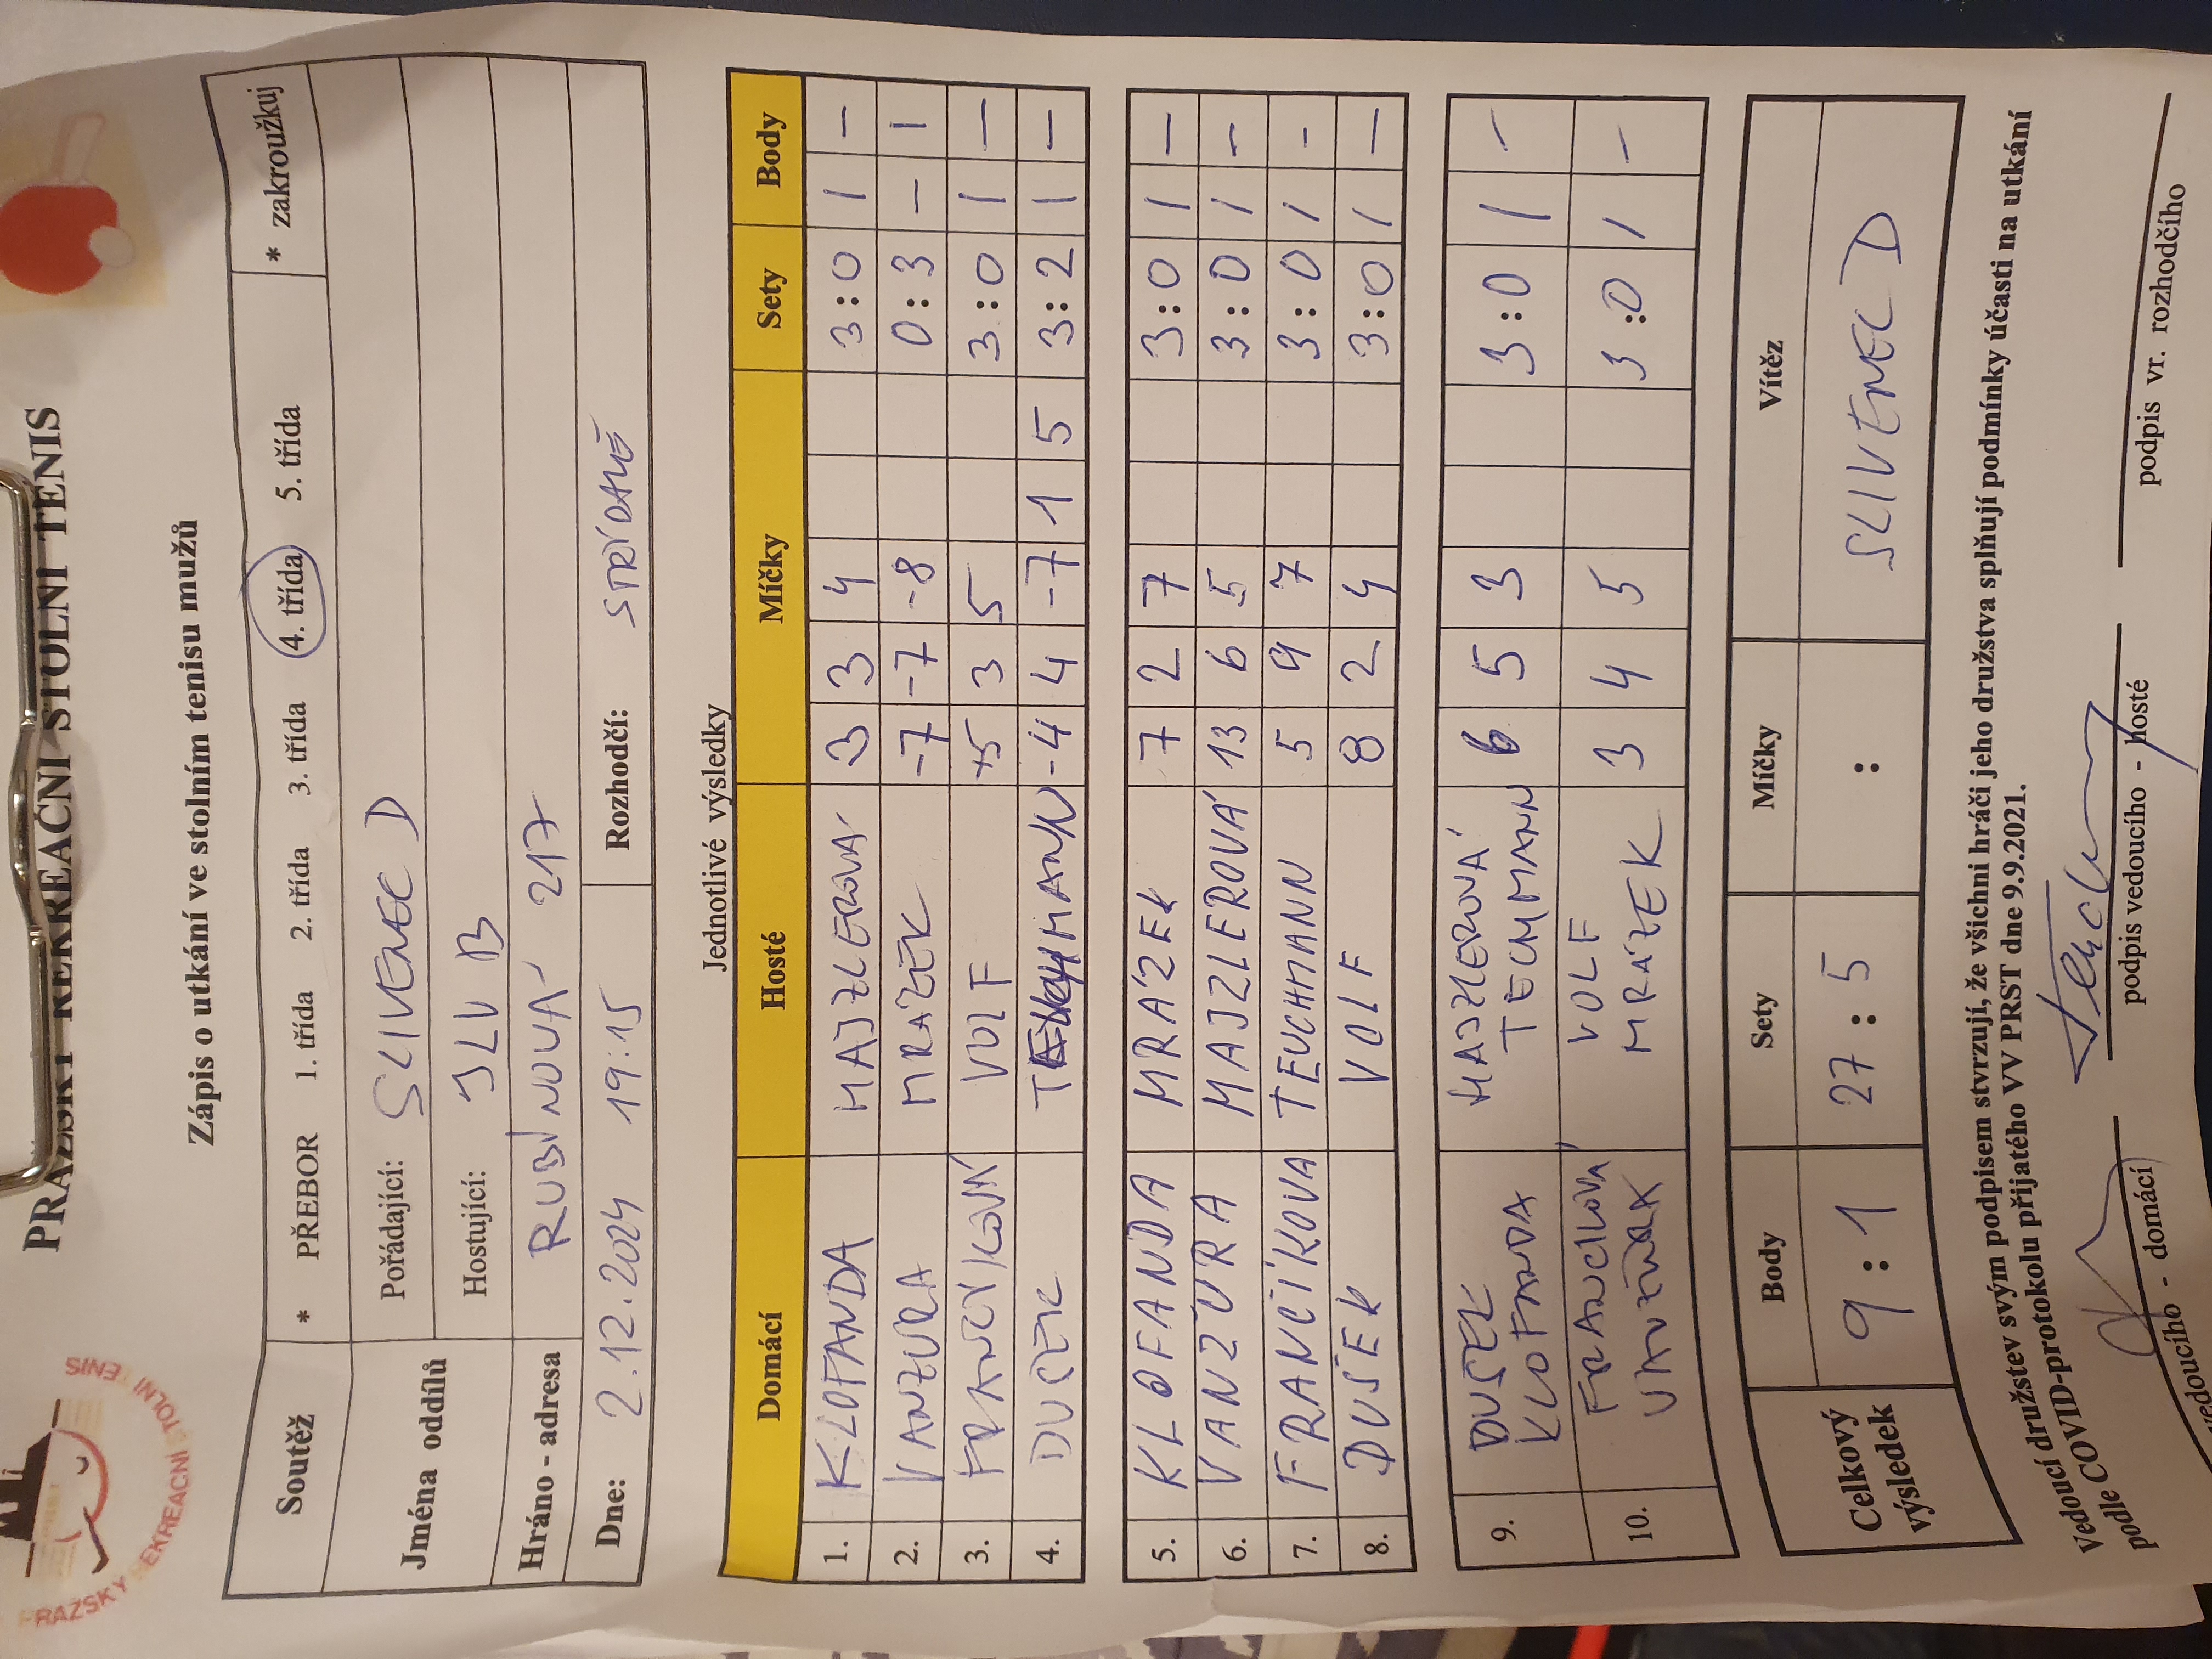 PRAŽSKÝ REKREAČNÍ STOLNÍ TENIS
PRAŽSKÝ REKREAČNÍ STOLNÍ TENIS
Zápis o utkání ve stolním tenisu mužů
Soutěž * PŘEBOR 1. třída 2. třída 3. třída 4. třída 5. třída * zakroužkuj
Jména oddílů Pořádající: SLIVENEC D
Hostující: JLV B
Hráno - adresa RUBÍNOVÁ 217
Dne: 2.12.2024 19:15 Rozhodčí: STŘÍDAVĚ
Jednotlivé výsledky
Domácí Hosté Míčky Sety Body
1. KLOFANDA MAJZLEROVÁ 3 3 4 3:0 1 –
2. VANŽURA MRÁZEK -7 -7 -8 0:3 – 1
3. VOLF +5 3 5 3:0 1 –
4. DUŠEK -4 4 -7 1 5 3:2 1 –
5. KLOFANDA MRÁZEK 7 2 7 3:0 1 –
6. VANŽURA MAJZLEROVÁ 13 6 5 3:0 1 –
7. FRANČÍKOVA TEUCHMANN 5 9 7 3:0 1 –
8. DUŠEK VOLF 8 2 4 3:0 1 –
9. DUŠEK KLOFANDA MAJZLEROVÁ TECHMANN 6 5 3 3:0 1 –
10. VOLF MRÁZEK 3 4 5 3:0 1 –
Celkový výsledek Body Sety Míčky Vítěz
9:1 27:5 : SLIVENEC D
Vedoucí družstev svým podpisem stvrzují, že všichni hráči jeho družstva splňují podmínky účasti na utkání
podle COVID-protokolu přijatého VV PRST dne 9.9.2021.
vedoucího - domácí podpis vedoucího - hosté podpis vr. rozhodčího